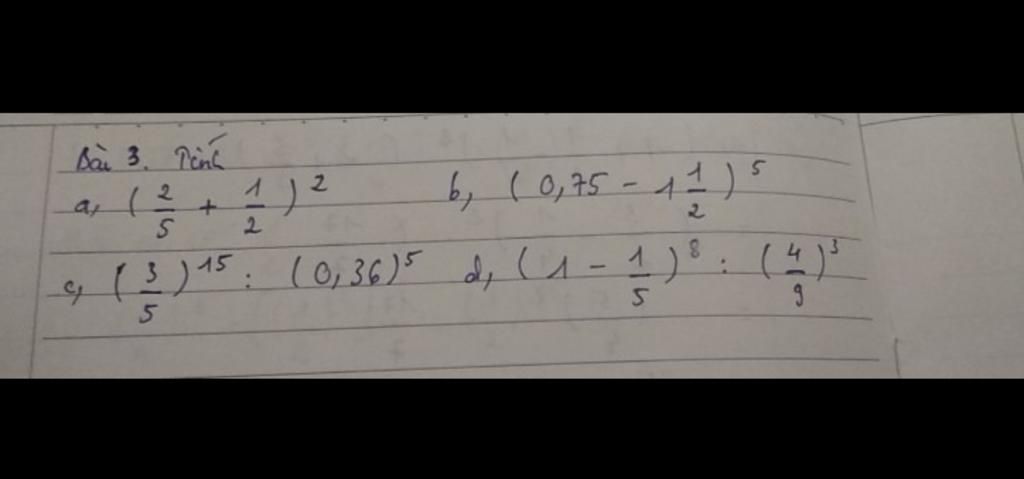 Bài 3. Tính
a, (2/5 + 1/2)^2 b, (0,75 - 1 1/2)^5
c, (3/5)^15 : (0,36)^5 d, (1 - 1/5)^8 : (4/9)^3